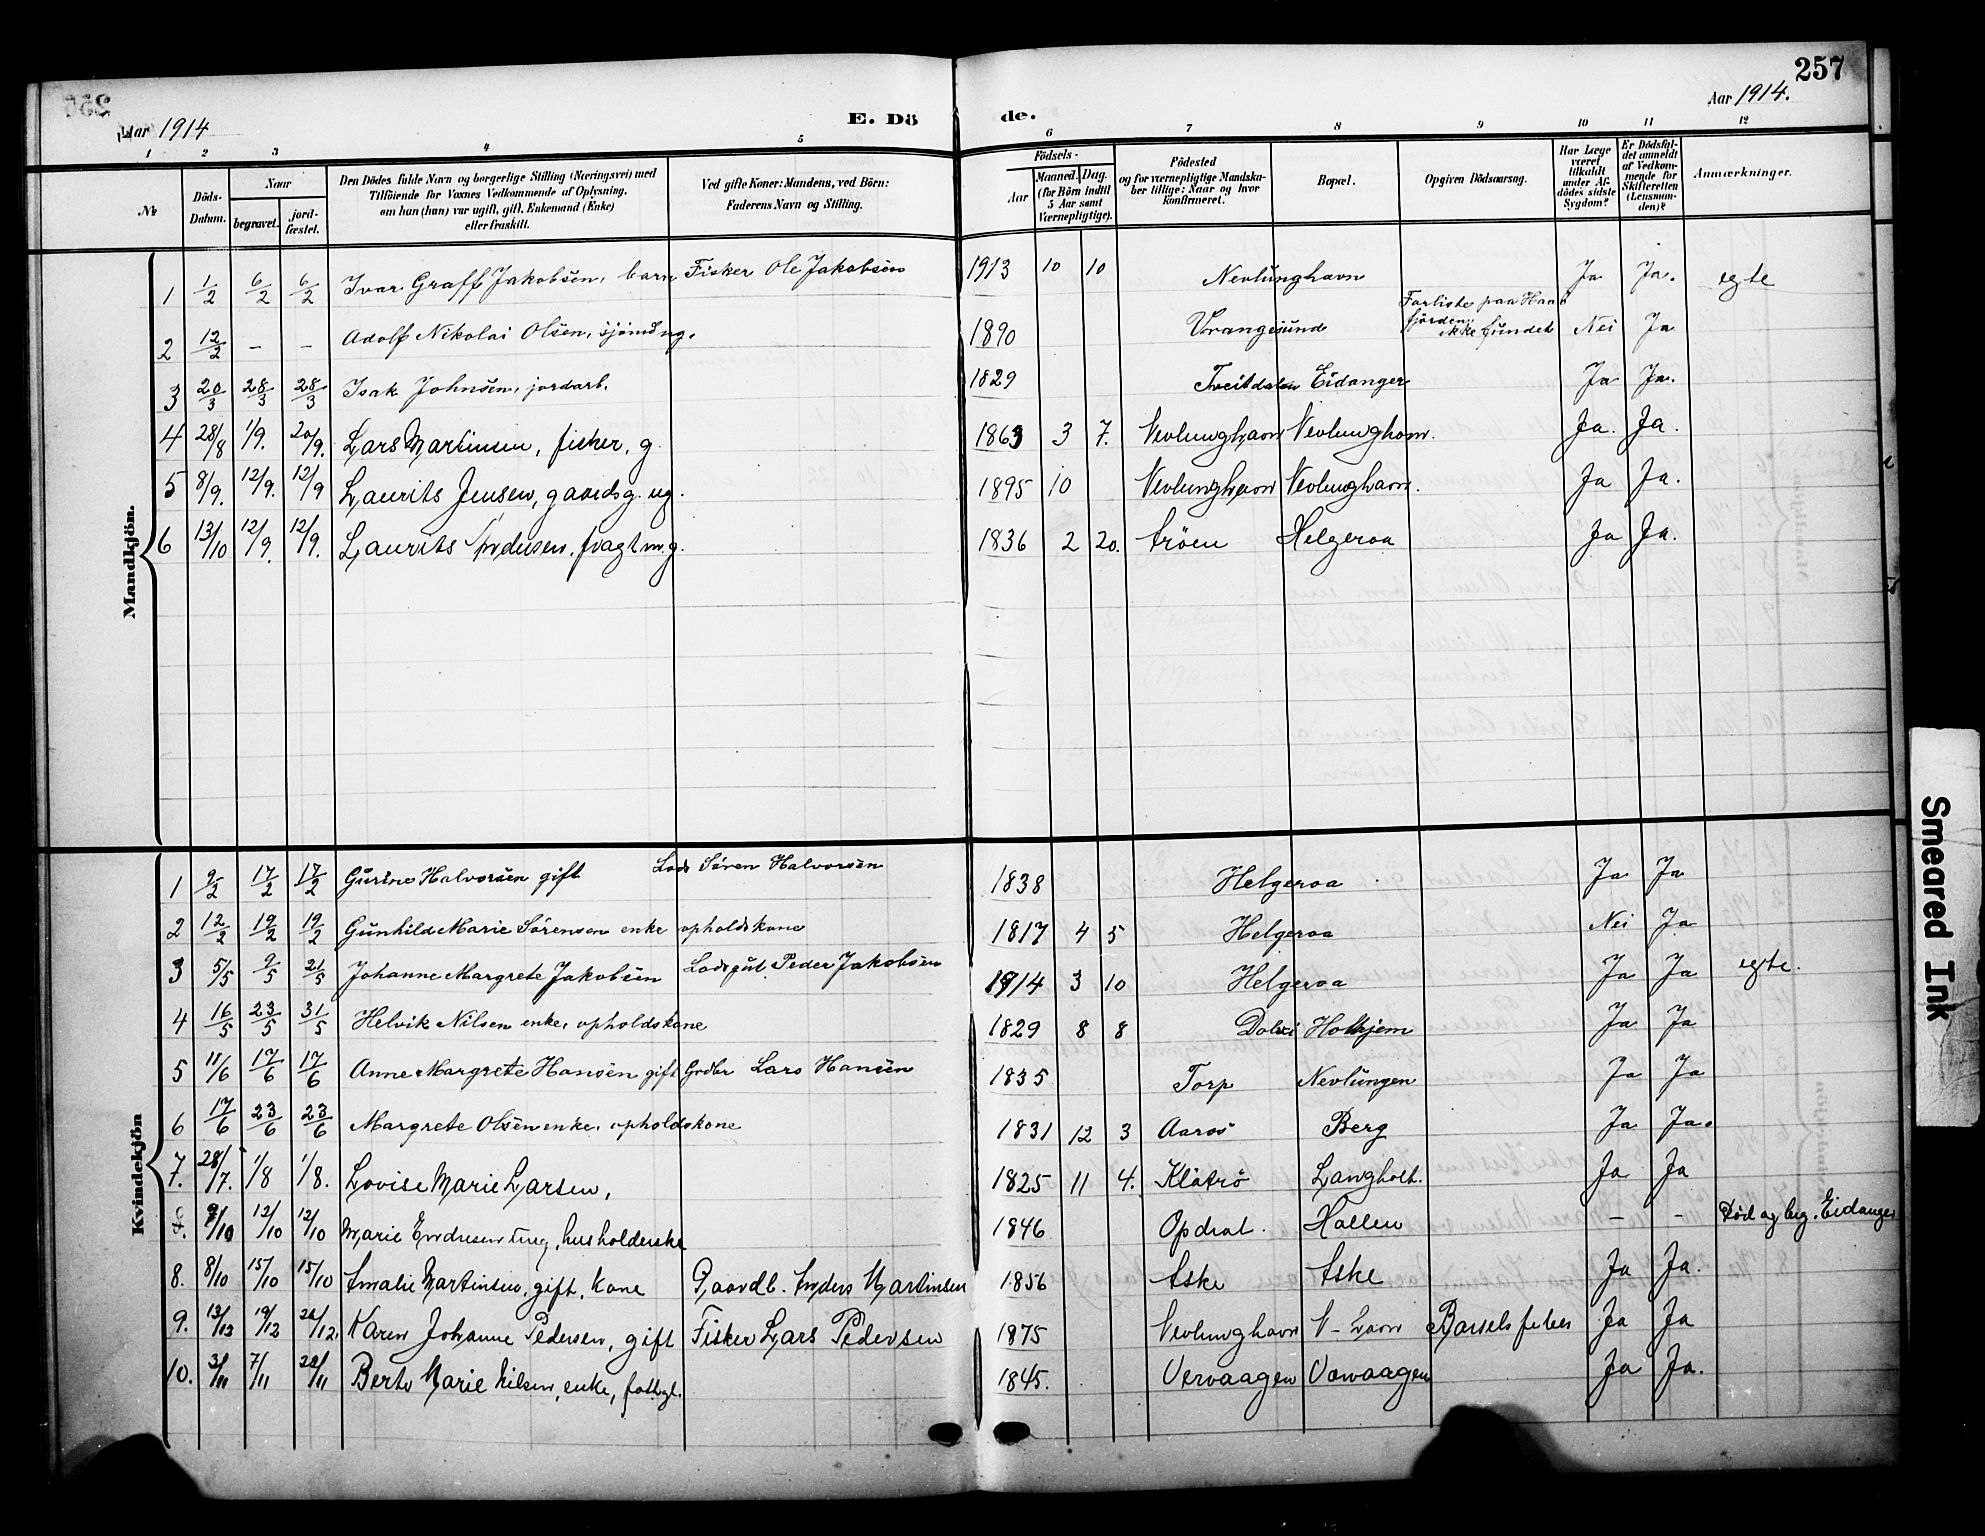 257
Aar 1914
E. Dö de.
Aar 1914.
1 2 3 4 5 6 7 8 9 10 11 12
No
Döds-Datum.
Naar
begravet.
jord-fæstet.
Den Dödes fulde Navn og borgerlige Stilling (Næringsvei) med
Tilföiende for Voxnes Vedkommende af Oplysning,
om han (hun) var ugift, gift, Enkemand (Enke)
eller fraskilt.
Ved gifte Koner: Mandens, ved Börn:
Faderens Navn og Stilling.
Födsels-
Aar
Maaned. Dag.
(for Börn indtil
5 Aar samt
Værnepligtige).
Födested
og for værnepligtige Mandska-
ber tillige: Naar og hvor
konfirmeret.
Bopæl.
Opgiven Dödsaarsag.
Har Læge
været
tilkaldt
under Af-
dödes sidste
Sygdom?
Er Dödsfal-
det anmeldt
af Vedkom-
mende for
Skifteretten
(Lensman-
den)?
Anmærkninger.
Mandkjön.
1 1/2 6/2 6/2 Ivar Graff Jakobsen, barn Fisker Ole Jakobsen 1913 10 10 Nevlunghavn Ja Ja. egte
2 12/2 – – Adolf Nikolai Olsen, sjömd ug. 1890 Vrangesund Forliste paa
fjorden, ikke fundet Nei Ja
3 20/3 28/3 28/3 Isak Johnsen, jordarb. 1829 Tveitdalen Eidanger Ja Ja.
4 28/8 1/9. 20/9. Lars Martinsen, fisker, g. 1863 3 7. Nevlunghavn Nevlunghavn. Ja. Ja.
5 8/9. 12/9. 12/9 Laurits Jensen, gaardsg. ug. 1895 10 Nevlunghavn Nevlunghavn. Ja Ja.
6 13/10 12/9. 12/9. Laurits fragtm g. 1836 2 20. Helgeroa Ja Ja.
Kvindekjön
1 9/2 17/2 17/2 Gurine Halvorsen gift Lods Sören Halvorsen 1838 Helgeroa Ja Ja
2 12/2 19/2 19/2 Gunhild Marie Sörensen enke opholdskone 1817 4 5 Helgeroa Nei Ja
3 5/5 9/5 21/5 Johanne Margrete Jakobsen Lodsgut. Peder Jakobsen 1914 3 10 Helgeroa Ja Ja egte.
4 16/5 23/5 31/5 Helvik Nilsen enke, opholdskone 1829 8 8 Ja Ja
5 11/6 17/6 17/6 Anne Margrete Hansen gift Grdbr Lars Hansen 1835 Torp Nevlungen Ja Ja
6 17/6 23/6 23/6 Margrete Olsen enke, opholdskone 1831 12 3 Aarös Berg Ja Ja.
7. 28/7. 1/8 1/8. Lovise Marie Larsen, 1825 11 4. Klåtrö Langholt. Ja Ja
/10 12/10 12/10 Marie ug, husholderske 1846 Opdral. Hallen – – Död og beg. Eidanger
8. 8/10 15/10 15/10 Amalie Martinsen, gift, kone Gaardb. Anders Martinsen 1856 Aske Aske Ja Ja.
9. 13/12 19/12 /12 Karen Johanne Pedersen, gift Fisker Lars Pedersen 1875 Nevlunghavn N-havn Barselsfeber Ja Ja
10. 3/11 7/11 /11 Berte Marie Nilsen, enke, fattigl. 1845. Vervaagen Vervaagen Ja Ja.
Smeared Ink